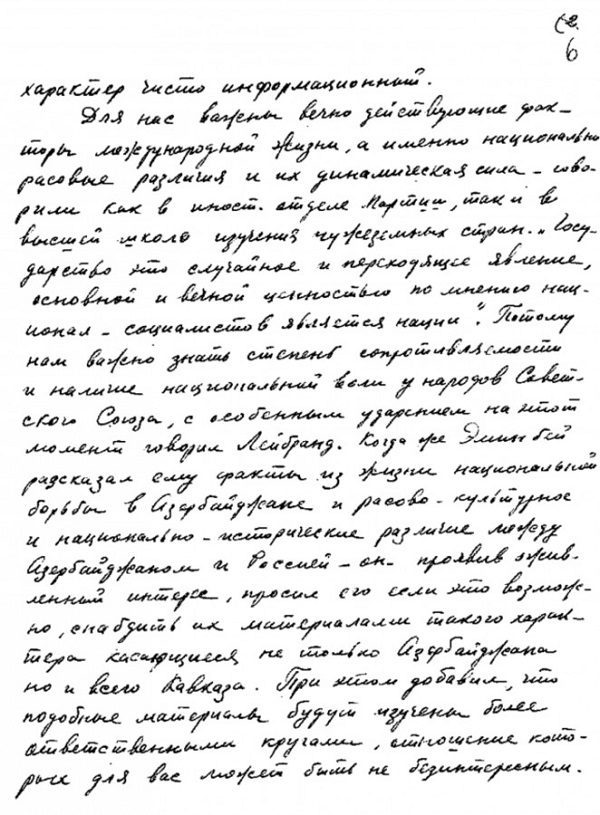 (2.
6
характер чисто информационный.
Для нас важны вечно действующие фак-
торы международной жизни, а именно национально
расовые различия и их динамическая сила – гово-
рили как в иност. отделе Партии, так и в
высшей школе изучения чужеземных стран. „Госу-
дарство это случайное и переходящее явление,
основной и вечной ценностью по мнению нац-
ионал-социалистов является нации". Потому
нам важно знать степень сопротивляемости
и наличие национальной воли у народов Совет-
ского Союза, с особенным ударением на этот
момент говорил Лейбранд. Когда же Эмин бей
рассказал ему факты из жизни национальной
борьбы в Азербайджане и расово-культурное
и национально-исторические различие между
Азербайджаном и Россией – он – проявив ожив-
ленный интерес, просил его если это возмож-
но, снабдить их материалами такого харак-
тера касающиеся не только Азербайджана
но и всего Кавказа. При этом добавил, что
подобные материалы будут изучены более
ответственными кругами, отношение кото-
рых для вас может быть не безинтересным.